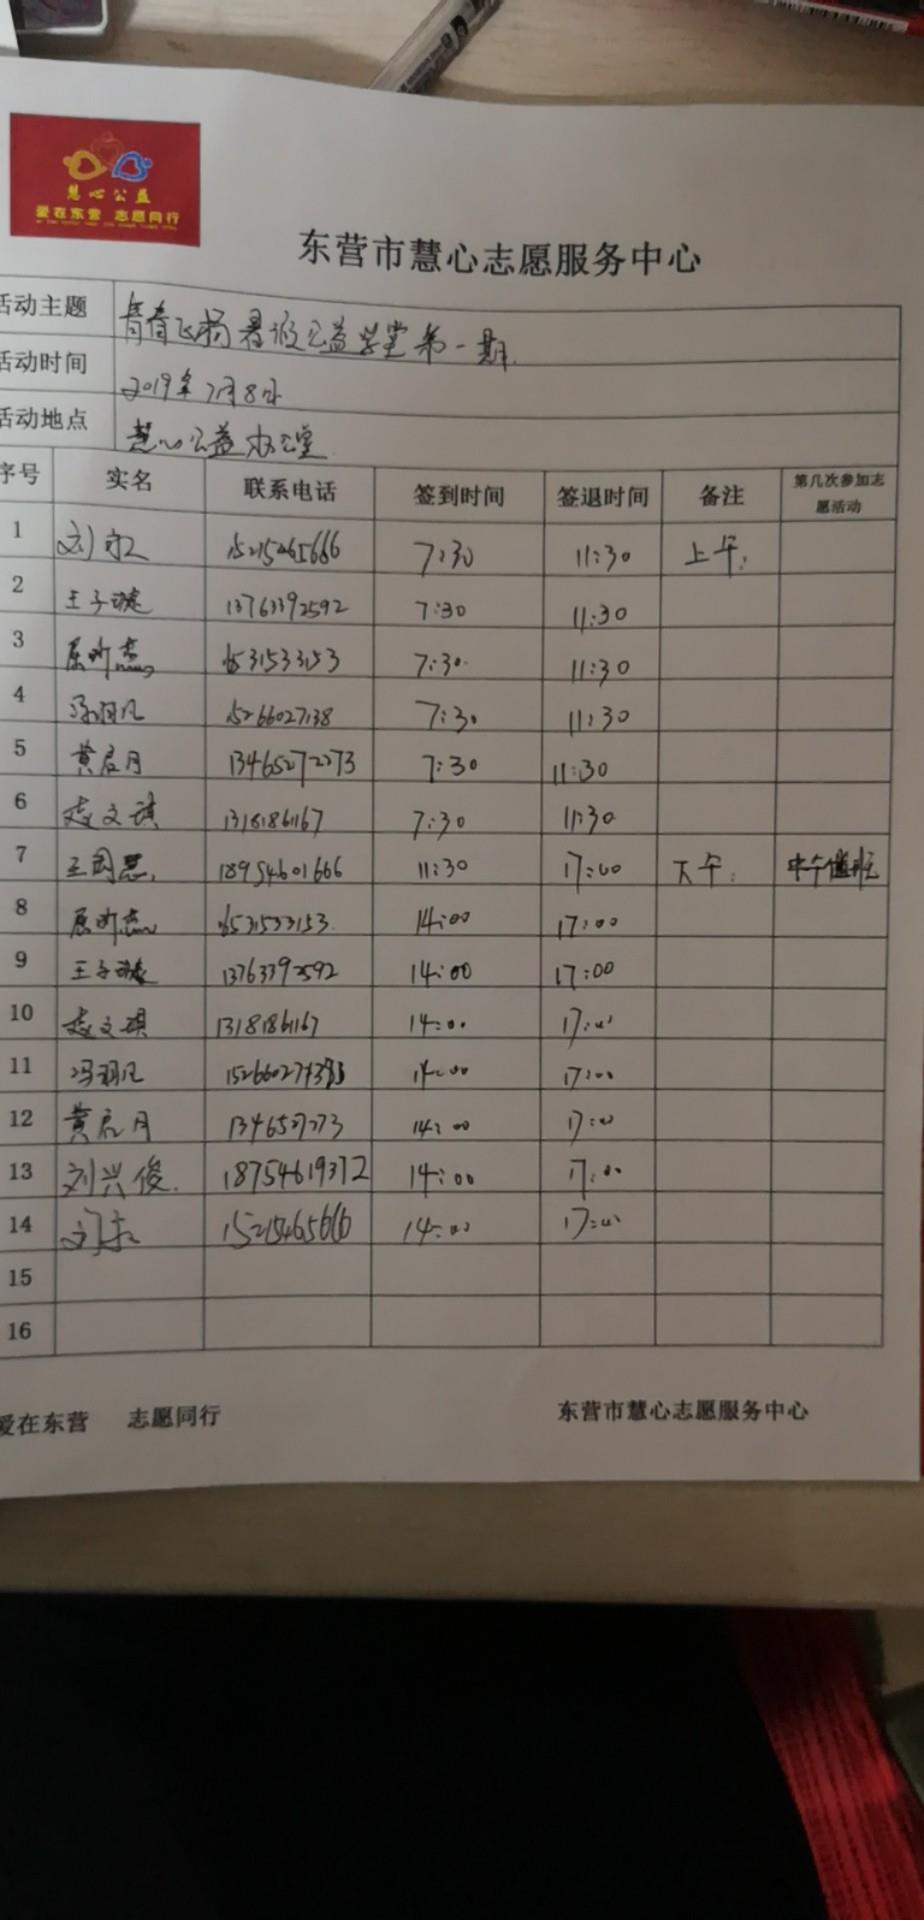 慧心公益
爱在东营 志愿同行
东营市慧心志愿服务中心
活动主题 青春飞扬暑假公益学堂第一期.
活动时间 2019年7月8日
活动地点 慧心公益办公室
序号 实名 联系电话 签到时间 签退时间 备注 第几次参加志愿活动
1 刘 15215465666 7:30 11:30 上午.
2 王子璇 13763392592 7:30 11:30
3 16531533153 7:30 11:30
4 冯羽凡 15266027138 7:30 11:30
5 黄启月 13465272273 7:30 11:30
6 赵文琪 13181861167 7:30 11:30
7 王国慧. 18954601666 11:30 17:00 下午. 中午值班
8 16531533153 14:00 17:00
9 王子璇 13763392592 14:00 17:00
10 赵文琪 13181861167 14:00 17:00
11 冯羽凡 14:00 17:00
12 黄启月 14:00 17:00
13 刘兴俊. 18754619372 14:00 17:00
14 刘 15215465666 14:00 17:00
15
16
爱在东营 志愿同行 东营市慧心志愿服务中心